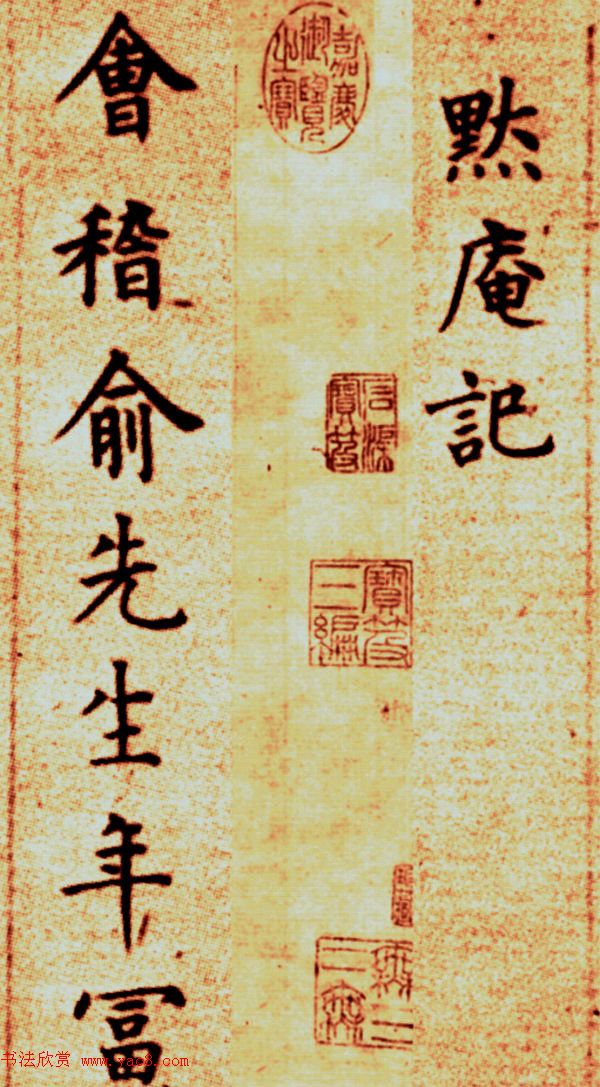 默庵記
嘉慶御覽之寶
石渠寶笈
寶笈三編
會稽俞先生年富
书法欣赏 www.yac8.com